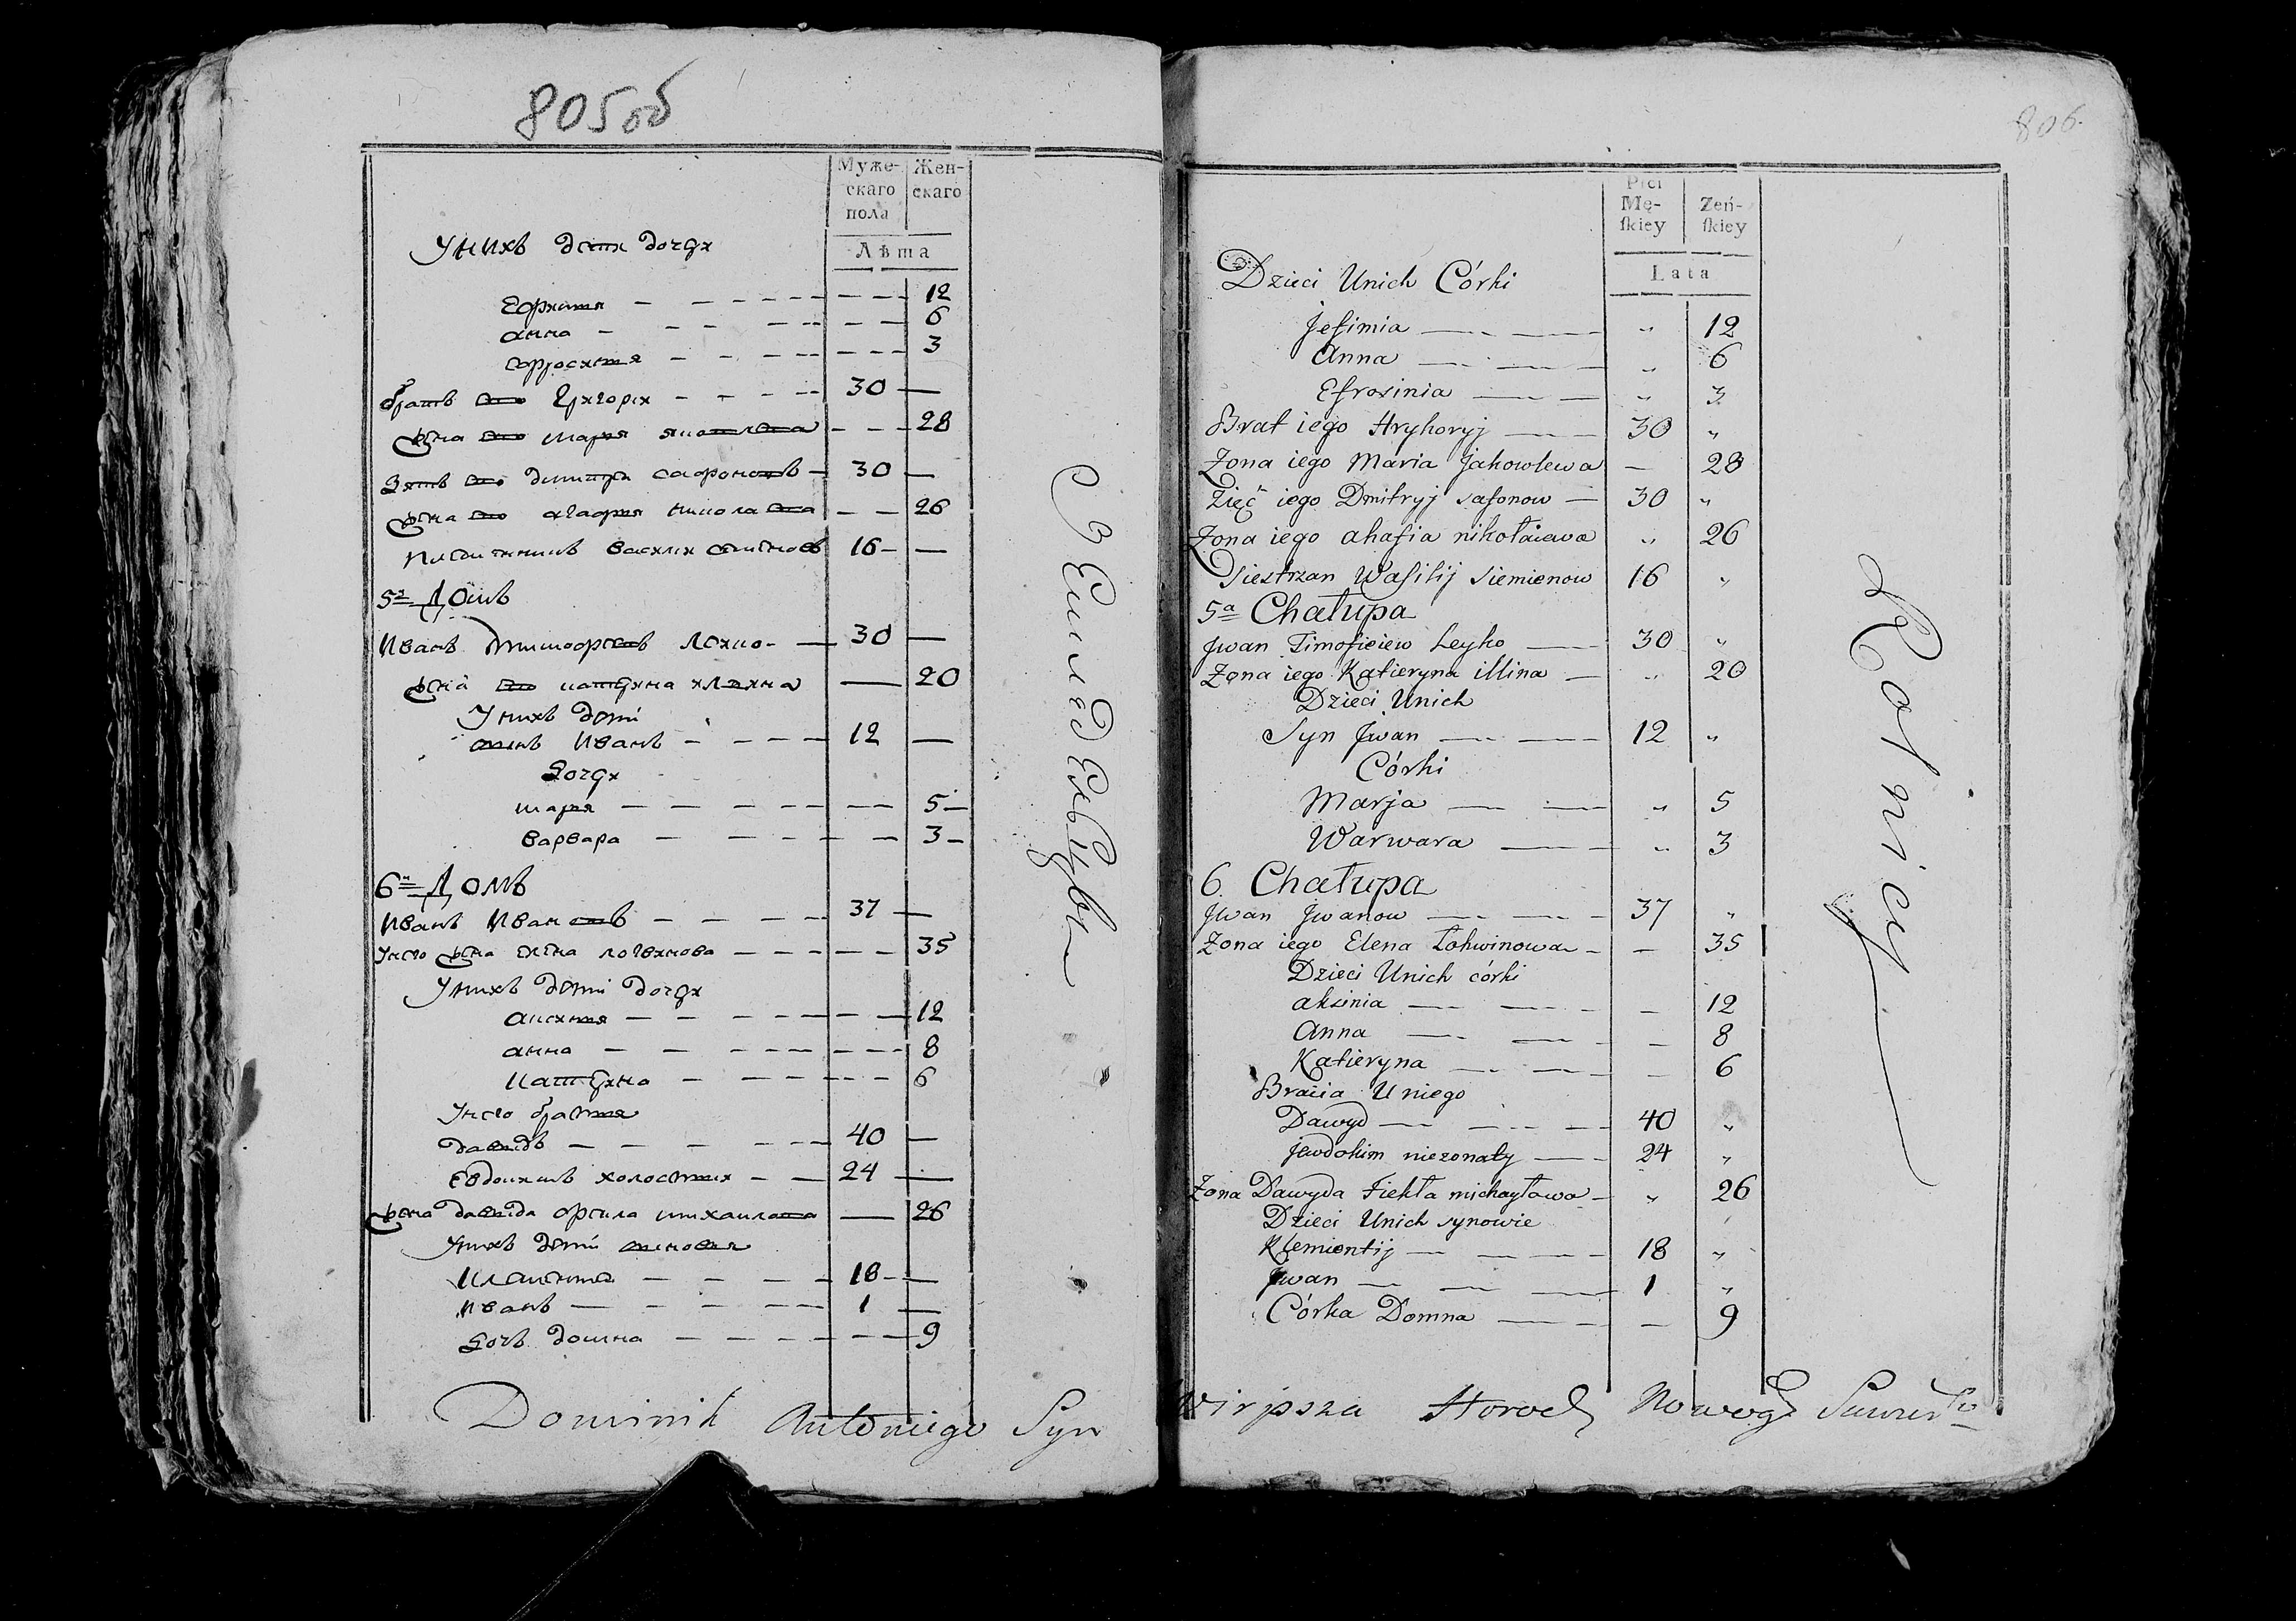 805 об
Муже-
скаго
пола
Жен-
скаго
Лѣта
Унихъ дети дочери
Ефимия 12
анна 6
ефросиния 3
братъ ево Григореи 30
жена ево мария яковлева 28
Зять ево димитри сафоновъ 30
жена ево агафия николаева 26
племенникъ василеи семеновъ 16
5й Домъ
Иванъ Тимофеевъ Леико 30
жена ево катерина илина 20
Унихъ дети
синъ Иванъ 12
Дочери
мария 5
варвара 3
6й Домъ
Иванъ Ивановъ 37
Унего жена елена логвинова 35
Унихъ дети дочери
аксиния 12
анна 8
катерина 6
Унего братия
давидъ 40
Евдокимъ холостии 24
жена давида фекла михаилова 26
Унихъ дети синовия
Клементеи 18
Иванъ 1
Дочъ домна 9
Земледелцы
Dominik Antoniego Syn
806.
Płci
Mę-
skiey
Zeń-
skiey
Lata
Dzieci Unich Córki
Jefimia " 12
Anna " 6
Efrosinia " 3
Brat iego Hryhoryj 30 "
Zona iego Maria Jakowlewa — 28
Zięć iego Dmitryj safonow 30 "
Zona iego ahafia nikołaiewa " 26
Siestrzan Wasilij Siemienow 16 "
5a Chałupa
Jwan Timofieiew Leyko 30 "
Zona iego Katieryna illina " 20
Dzieci Unich
Syn Jwan 12 "
Córki
Marja " 5
Warwara " 3
6. Chałupa
Jwan Jwanow 37 "
Zona iego Elena Łohwinowa — 35
Dzieci Unich córki
aksinia — 12
Anna — 8
Katieryna — 6
Bracia Uniego
Dawyd 40 "
Jewdokim niezonaty 24 "
Zona Dawyda Fiekła michayłowa " 26
Dzieci Unich synowie
Klemientij 18 "
Jwan 1 "
Córka Domna — 9
Rolnicy
Wirpsza Horod Nowog